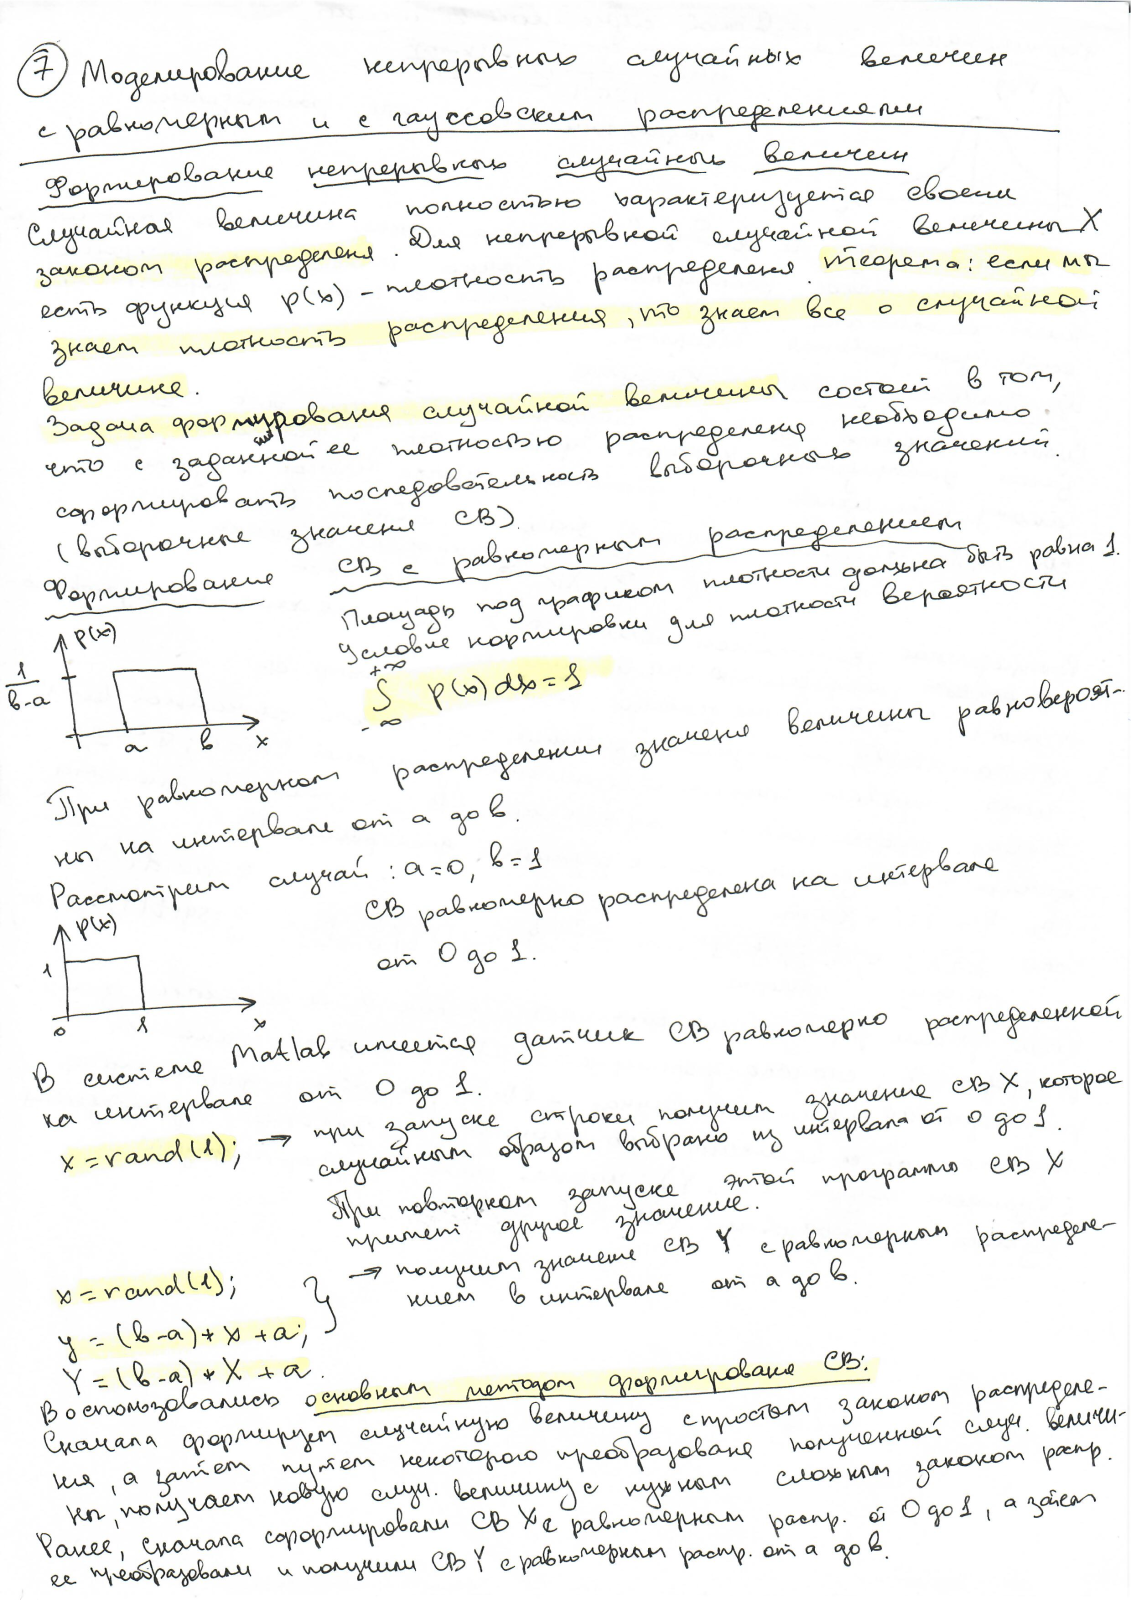 7 Моделирование непрерывных случайных величин
с равномерным и с гауссовским распределениями
Формирование непрерывных случайных величин
Случайная величина полностью характеризуется своим
законом распределения. Для непрерывной случайной величины X
есть функция p(x) – плотность распределения. Теорема: если мы
знаем плотность распределения, то знаем все о случайной
величине.
Задача формирования случайной величины состоит в том,
что с заданной ее плотностью распределения необходимо
сформировать последовательность выборочных значений.
(выборочные значения СВ).
Формирование СВ с равномерным распределением
Площадь под графиком плотности должна быть равна 1.
Условие нормировки для плотности вероятности
p(x)
1
в-а
а в x
+∞
∫ p(x)dx=1
-∞
При равномерном распределении значения величины равновероят-
ны на интервале от а до в.
Рассмотрим случай: а=0, в=1
СВ равномерно распределена на интервале
от 0 до 1.
p(x)
1
0 1 x
В системе Matlab имеется датчик СВ равномерно распределенной
на интервале от 0 до 1.
x=rand(1); → при запуске строки получим значение СВ X, которое
случайным образом выбрано из интервала от 0 до 1.
При повторном запуске этой программы СВ X
примет другое значение.
x=rand(1);
y=(в-а)*x+а;
} → получим значение СВ Y с равномерным распределе-
нием в интервале от а до в.
Y=(в-а)*X+а.
Воспользовались основным методом формирования СВ:
Сначала формируем случайную величину с простым законом распределе-
ния, а затем путем некоторого преобразования полученной случ. величи-
ны, получаем новую случ. величину с нужным сложным законом распр.
Ранее, сначала сформировали СВ X с равномерным распр. от 0 до 1, а затем
ее преобразовали и получили СВ Y с равномерным распр. от а до в.